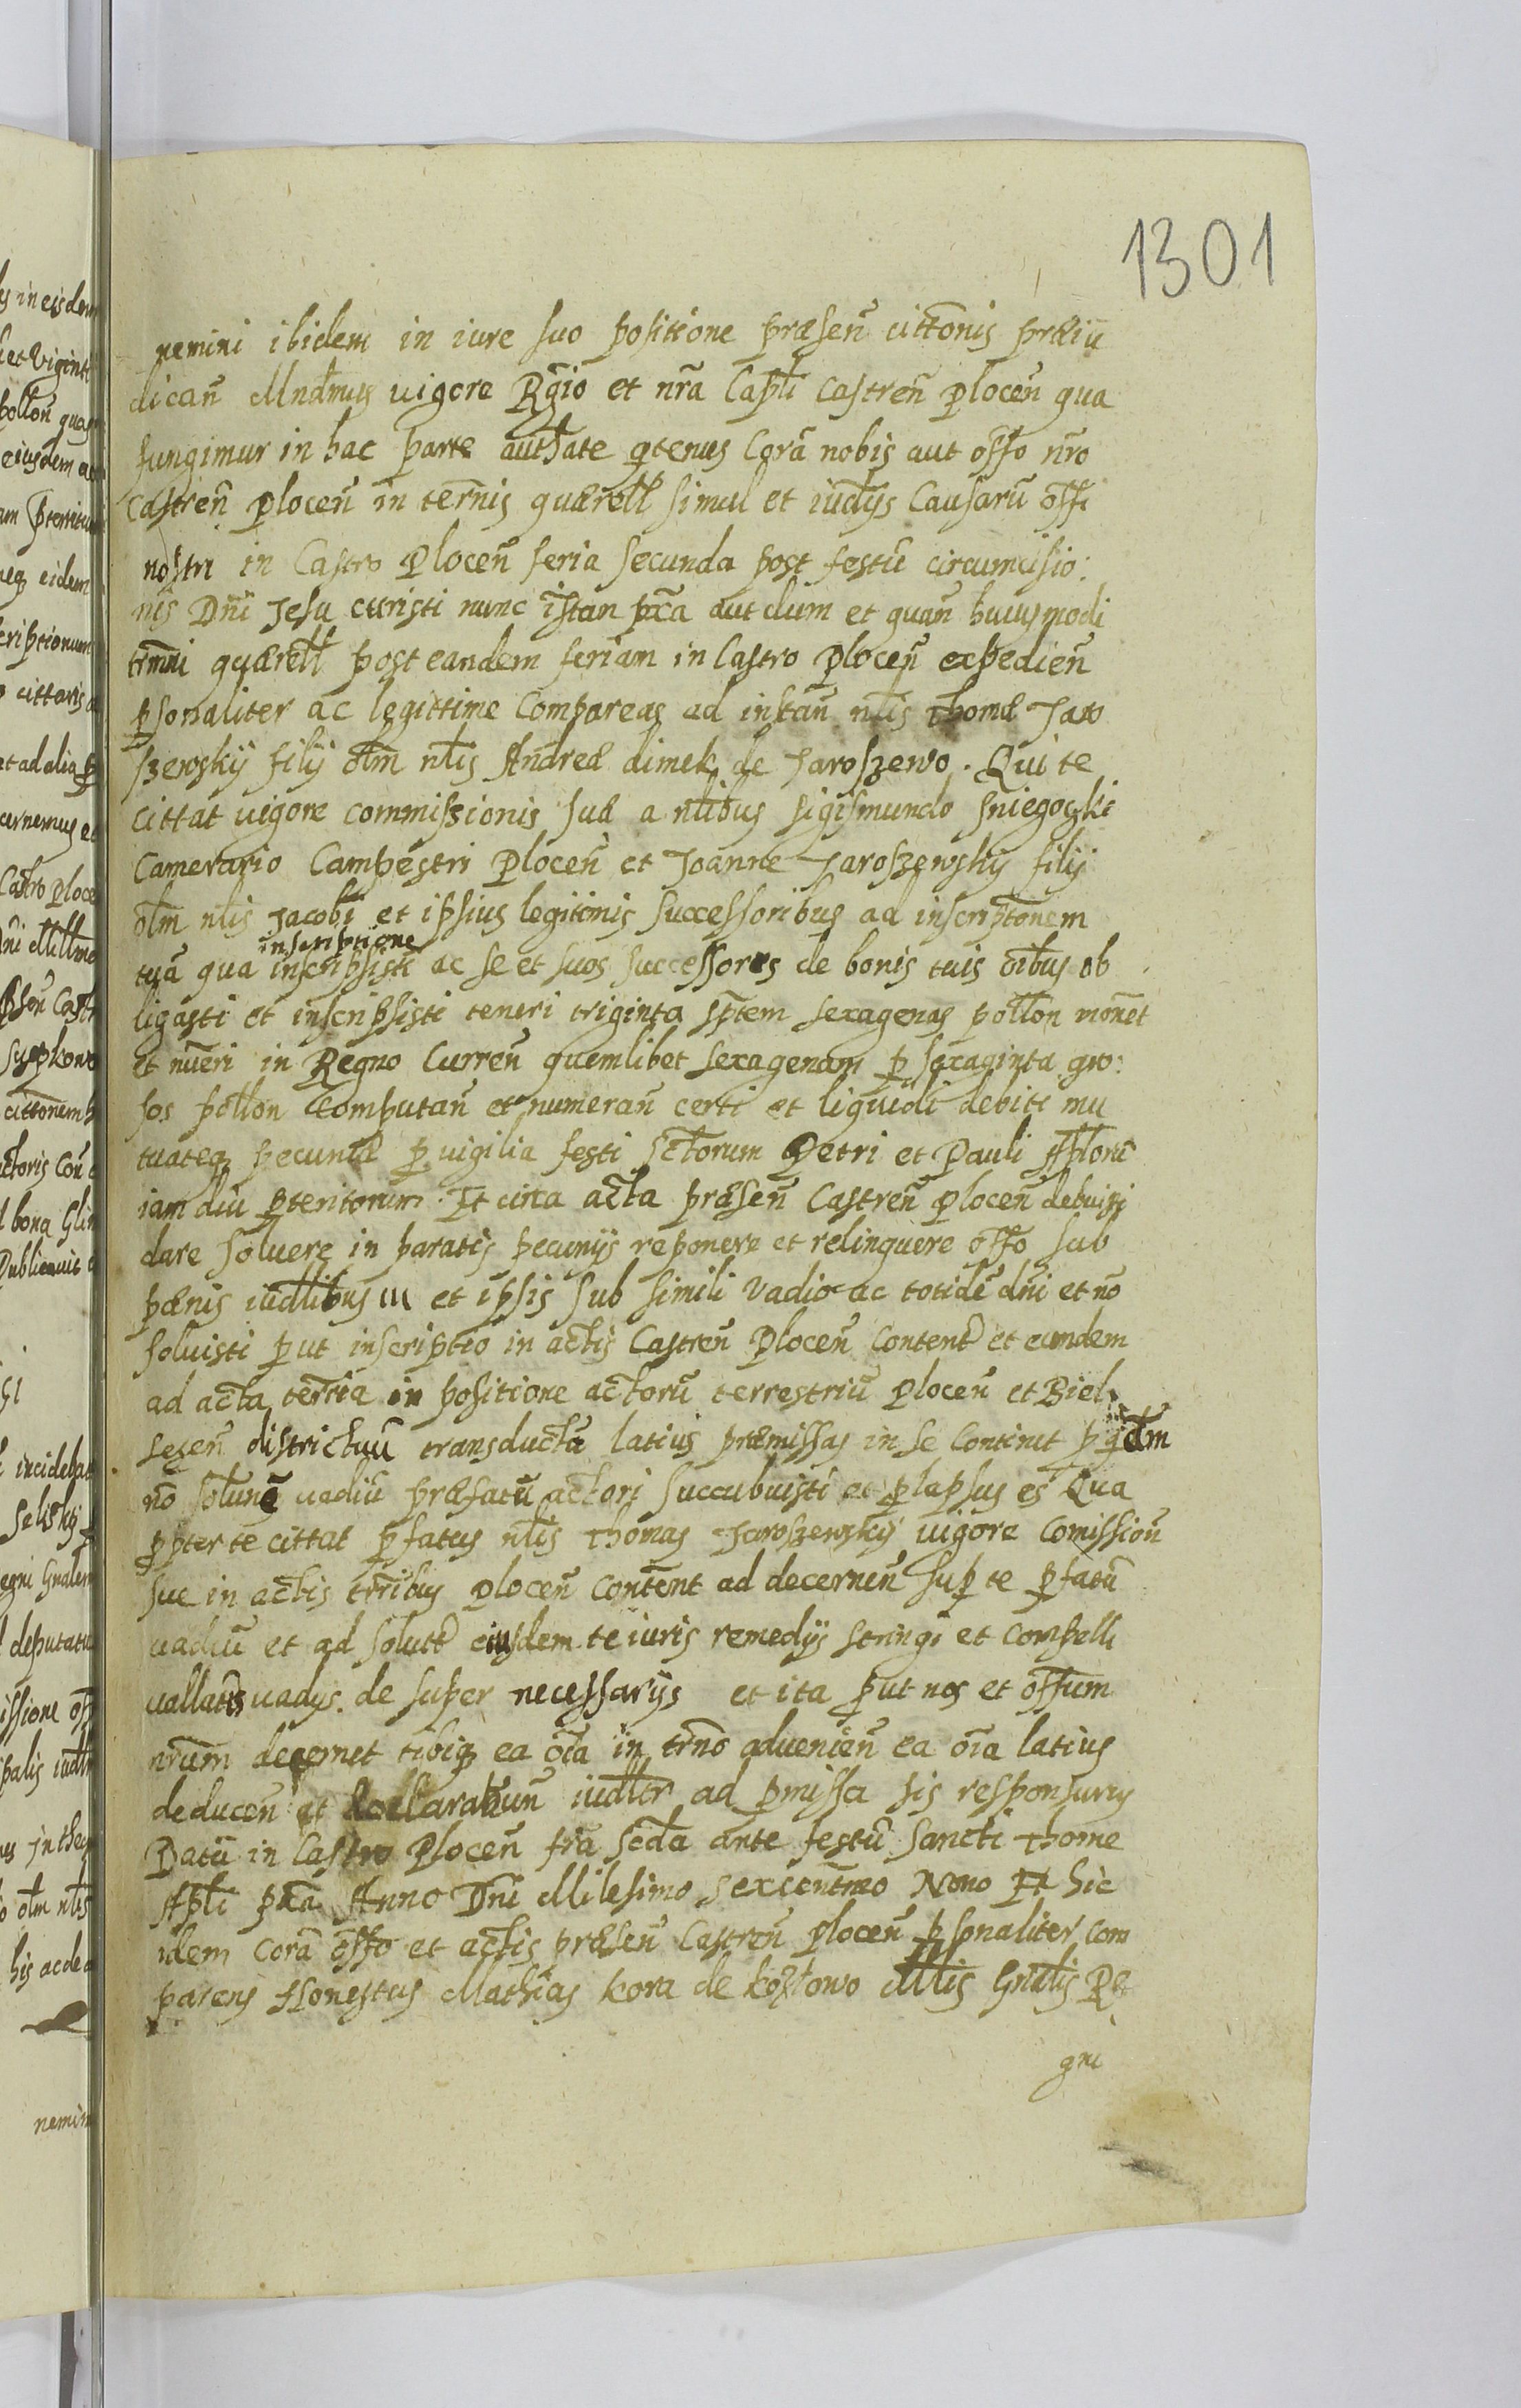 1301
nemini ibidem in iure suo positione præsen̄ citt̄onis præiu
dican̄ Mndāmus vigore Rḡio et nr̄a Capt̄i Castren̄ Plocen̄ qua
fungimur in hac parte autħate q̄tenus Corā nobis aut off̄o nr̄o
Castren̄ Plocen̄ in term̄is quærell̄ simul et iud̄ys Causarū offi
nostri in Castro Plocen̄ feria secunda post festū circumcisio:
nis Dn̄i Jesu christi nunc īstan px̄a aut dum et quan̄ huiusmodi
trm̄ni quærell̄ post eandem feriam in Castro Plocen̄ expedien̄
p̄sonaliter ac legittime Compareas ad instan̄ nl̄is Thomæ Jaro
szewskÿ filÿ ol̄m nl̄is Andreæ dimek de Jaroszewo. Qui te
cittat vigore commissionis suæ a nl̄ibus sigismundo sniegoczki
Camerario Campestri Plocen̄ et Joanne Jaroszewskÿ filÿ
ol̄m nl̄is Jacobi et ipsius legitimis successoribus ad inscript̄onem
inscriptione
tuā qua inscripsisti ac se et suos successores de bonis tuis oībus ob
ligasti et inscripsisti teneri triginta sp̄tem sexagenas poll̄on mon̄et
et nūeri in Regno Curren̄ quemlibet sexagenam p̄ sexaginta gro:
sos poll̄on Computan̄ et numeran̄ certi et liquidi debiti mu
tuateq̨ pecuniæ p̄ vigilia festi sct̄orum Petri et Pauli Apl̄orū
iam diu p̄teritorum. Et circa acta præsen̄ Castren̄ Plocen̄ debuisti
dare soluere in paratis pecunÿs reponere et relinquere off̄o sub
pænis iudl̄ibus III et ipsis sub simili vadio ac totidē dn̄i et nō
soluisti p̄ut inscriptio in actis Castren̄ Plocen̄ Content̄ et eundem
ad acta terr̄ia in positione actorū terrestriū Plocen̄ et Biel
scen̄ districtuū transducta latius præmissas in se Continet p̄ qd̄m
nō solun̄e vadiū præfatū actori succubuisti et p̄lapsus es Qua
p̄pter te cittat p̄fatus nl̄is Thomas Jaroszewskÿ vigore Comission̄
sue in actis trr̄ibus Plocen̄ Content ad decernen̄ sup̄ te p̄fatū
vadiū et ad solut̄ eiusdem te iuris remedÿs stringi et compelli
vallatis vadÿs de super necessarÿs et ita p̄ut nos et off̄um
nr̄um decernet tibiq̨ ea oīa in tr̄no aduenien̄ ea oīa latius
deducen̄ et declarabun̄ iudl̄ir ad p̄missa sis responsurus
Datū in Castro Plocen̄ fr̄ia secd̄a ante festū Sancti Thome
Apl̄i px̄a Anno Dn̄i Milesimo sexcentm̄o Nono Et hic
idem Corā off̄o et actis præsen̄ Castren̄ Plocen̄ p̄sonaliter Com
parens Honestus Mathias kora de kozłowo Ml̄is Gnal̄is Re
gni